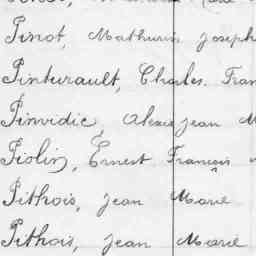 Pinot, Mathurin Joseph
Pinturault, Charles. Fran
Pinvidic, Alexis Jean M
Piolin, Ernest Français
Pithois, Jean Marie
Pithois, Jean Marie